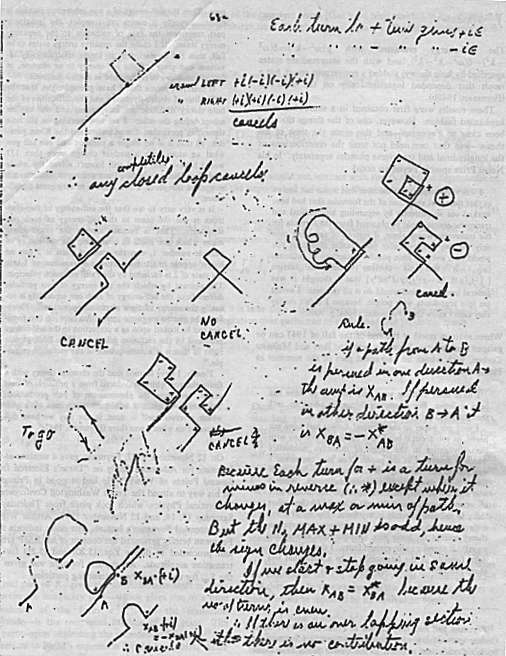 Each turn in + time gives +iε
" " " - " " -iε
around LEFT +i(-i)(-i)(+i)
" RIGHT (+i)(+i)(-i)(+i)
cancels
∴ any completely closed loop cancels.
+
-
cancel.
CANCEL
NO
CANCEL
Rule.
B
if a path from A to B
is persued in one direction A→
the amp is X_AB. If persued
in other direction B→A it
is X_BA = -X*_AB
CANCEL
To go
Because Each turn for + is a turn for
minus in reverse (∴ *) except when it
changes, at a max or min of path.
But the No. MAX + MIN is odd, hence
the sign changes.
If we start & stop going in same
direction, then X_AB = X*_BA because the
no of turns is even.
∴ If there is an over lapping section
there is no contribution.
B X_BA (+i)
A
A
X_AB +i